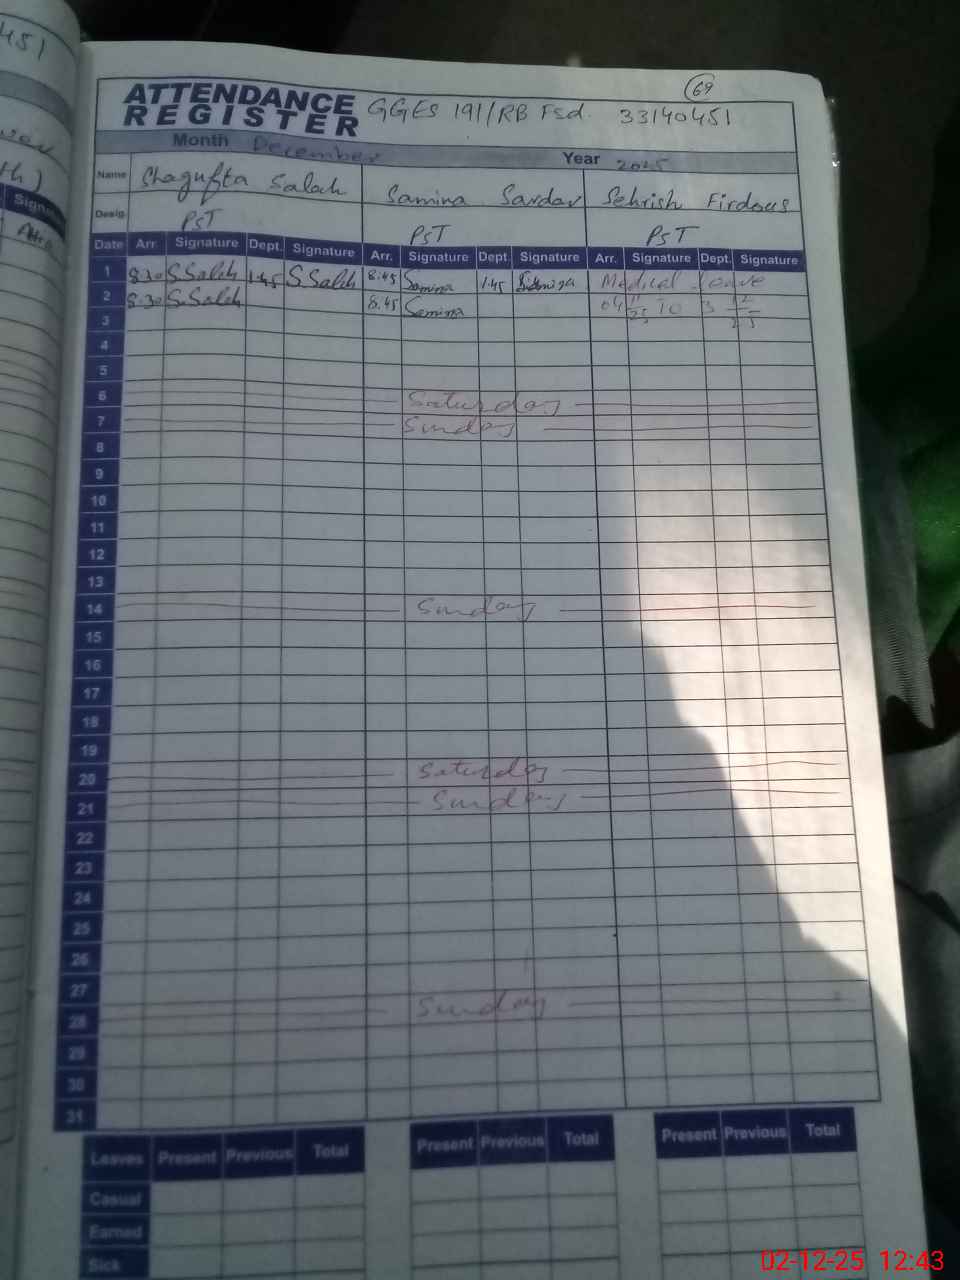 451
69
ATTENDANCE REGISTER GGES 191/RB Fsd. 33140451
Month December Year 2025
Name Shagufta Saleh Samina Sardar Sehrish Firdous
Desig. PST PST PST
Date Arr. Signature Dept. Signature Arr. Signature Dept. Signature Arr. Signature Dept. Signature
1 8:30 S Saleh 1:45 S Saleh 8:45 Samina 1:45 Samina Medical leave
2 8:30 S Saleh 8:45 Samina 04/11/25 To 3/12/25
3
4
5
6 Saturday
7 Sunday
8
9
10
11
12
13
14 Sunday
15
16
17
18
19
20 Saturday
21 Sunday
22
23
24
25
26
27
28 Sunday
29
30
31
Leaves Present Previous Total Present Previous Total Present Previous Total
Casual
Earned
Sick
02-12-25 12:43